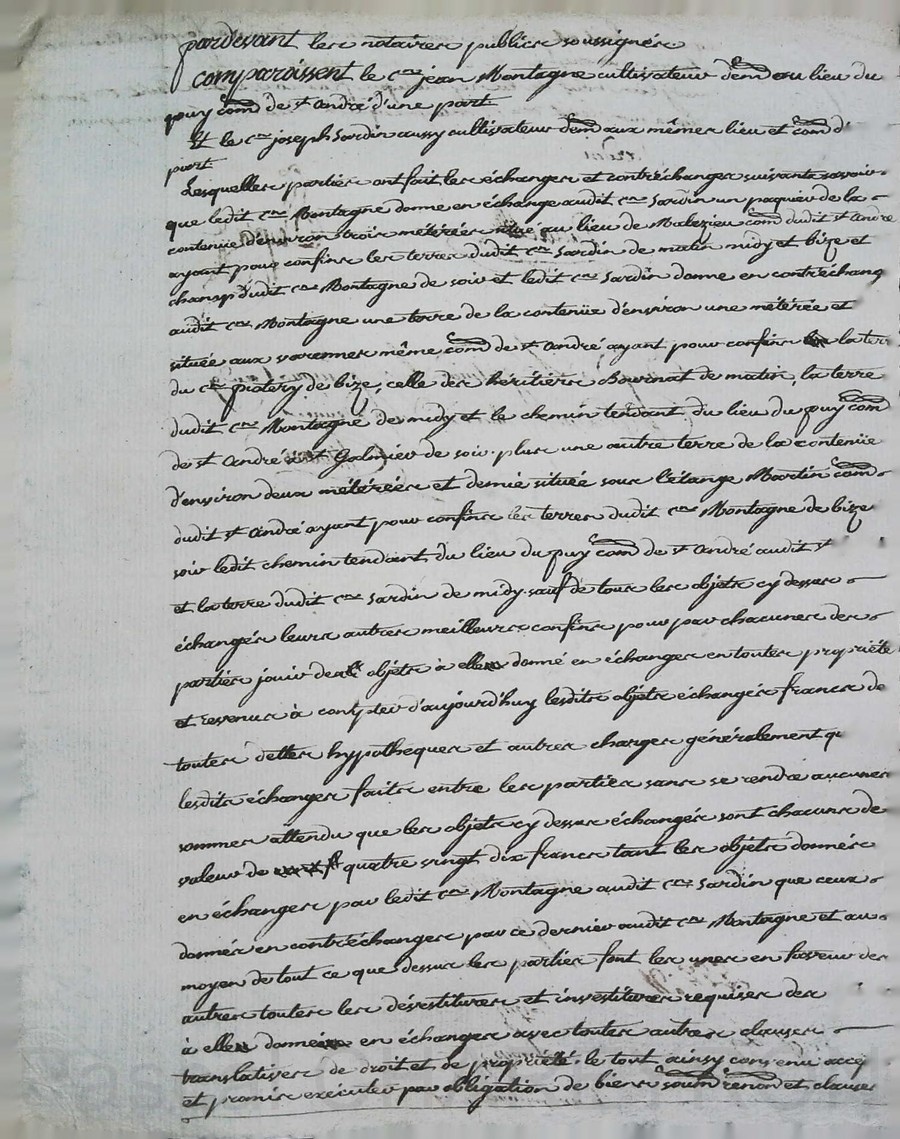 pardevant les notaires publics soussignés
comparoissent le c.en jean Montagne cultivateur dem au lieu du
puy com de s.t andré d'une part
Et le c.en joseph Sardin aussy cultivateur dem aux mêmes lieu et com d'
part
Lesquelles parties ont fait les échanges et contréchanges suivants savoir
que ledit c.en Montagne donne en échange audit c.en Sardin un paquier de la
contenue d'environ trois métérées au lieu de Malezieu com dudit s.t andré
ayant pour confins les terres dudit c.en Sardin de matin midy et bize et
champ dudit c.en Montagne de soir et ledit c.en Sardin donne en contréchang
audit c.en Montagne une terre de la contenüe d'environ une métérée et
située aux varennes même com de s.t andré ayant pour confins la terr
du c.en de bize, celle des héritiers Bournat de matin, la terre
dudit c.en Montagne de midy et le chemin tendant du lieu du puy com
de s.t andré à s.t Galmier de soir. plus une autre terre de la contenüe
d'environ deux métérées et demie située sous l'étange Martin com
dudit s.t andré ayant pour confins les terres dudit c.en Montagne de bize
soir ledit chemin tendant du lieu du puy com de s.t andré audit s.t
et la terre dudit c.en Sardin de midy. sauf de tous les objets cy dessus
échangés leurs autres meilleurs confins pour par chacunes des
parties jouir des objets à elles donné en échanges en toutes propriété
et revenus à compter d'aujourd'huy lesdits objets échangés francs de
toutes dettes hypotheques et autres charges généralement q
lesdits échanges faits entre les parties sans se rendre aucunes
sommes attendu que les objets cy dessus échangés sont chacuns de
valeur de quatre vingt dix francs tant les objets donnés
en échanges par ledit c.en Montagne audit c.en Sardin que ceux
donnés en contréchanges par ce dernier audit c.en Montagne et au
moyen de tout ce que dessus les parties font les unes en faveur des
autres toutes les dévestitures et investitures requises des
à elles données en échanges avec toutes autres clauses
translatives de droit et de propriété. le tout ainsy convenu accep
et promis exécuter par obligation de biens soum renon et clauses